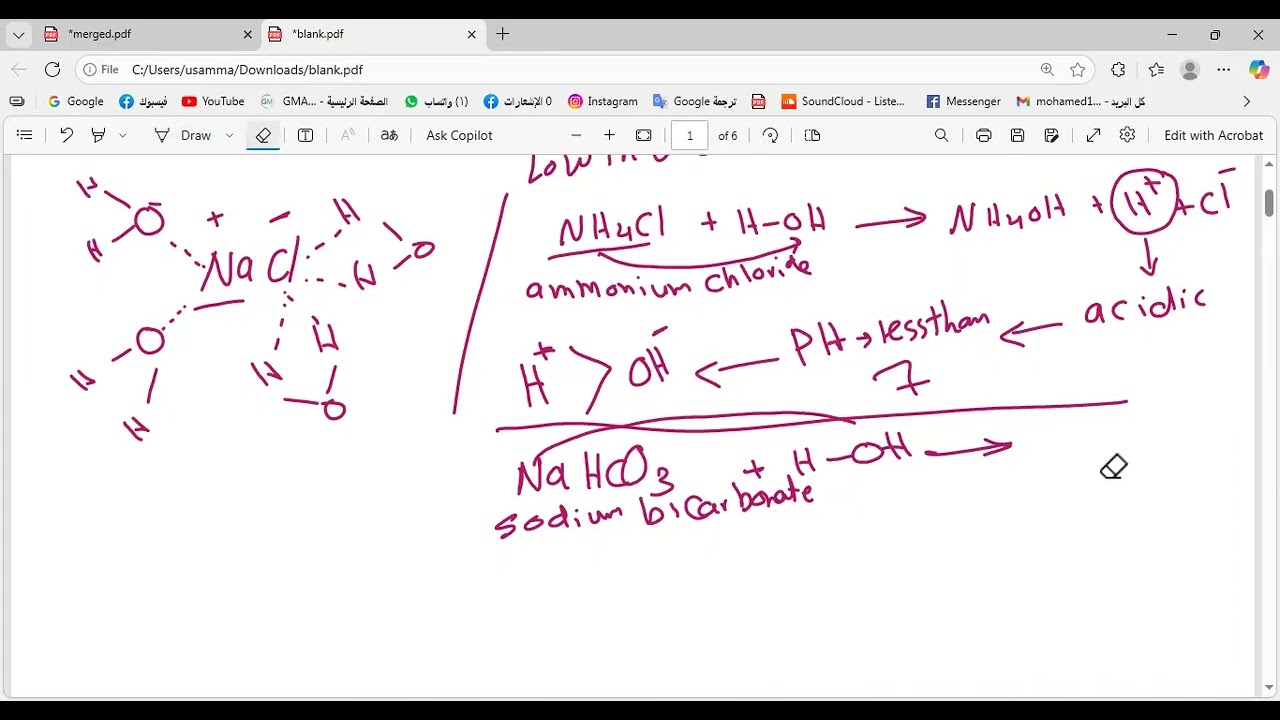 *merged.pdf
*blank.pdf
File C:/Users/usamma/Downloads/blank.pdf
Google
فيسبوك
YouTube
GMA... - الصفحة الرئيسية
(١) واتساب
0 الإشعارات
Instagram
Google ترجمة
SoundCloud - Liste...
Messenger
mohamed1... - كل البريد
Draw
Ask Copilot
1 of 6
Edit with Acrobat
H
H
O-
+ -
Na Cl
H
H
O
O
H
H
H
H
O
NH4Cl + H-OH → NH4OH + H+ + Cl-
ammonium chloride
acidic
PH → less than 7
H+ > OH-
NaHCO3 + H-OH →
sodium bicarbonate